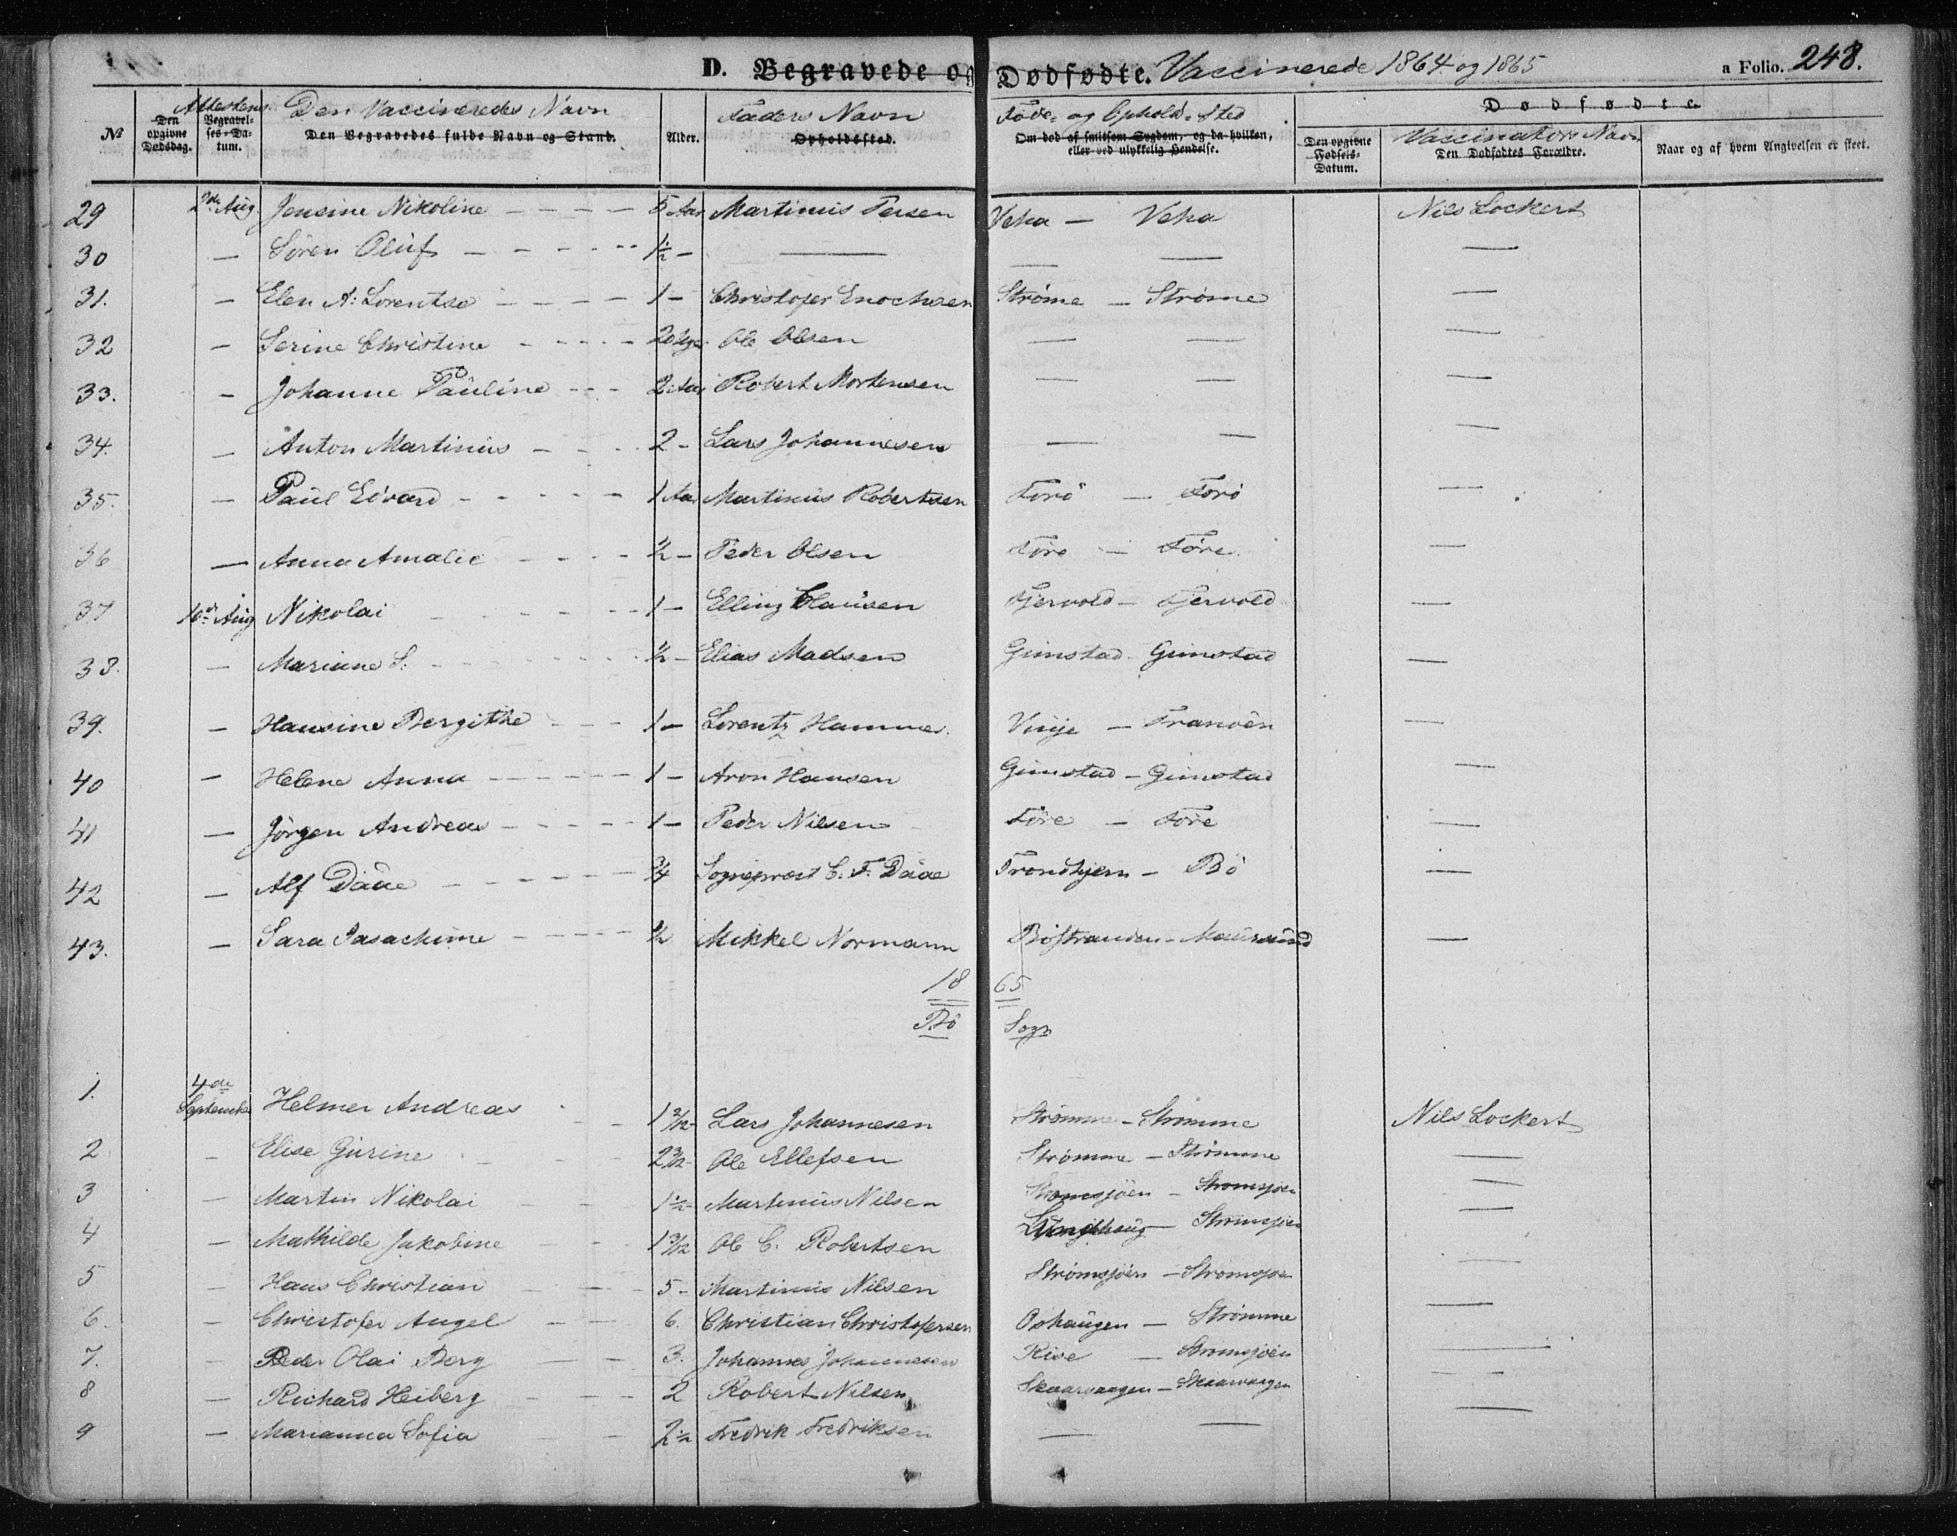 D. Begravede og Dødfødte. Vaccinerede 1864 og 1865 a Folio. 248.
No
Den opgivne Dødsdag.
Attestens
Begravelses-Datum.
Den Vaccineredes Navn
Den Begravedes fulde Navn og Stand.
Alder.
Faders Navn
Opholdssted.
Føde- og Ophold-Sted
Om død af smitsom Sygdom, og da hvilken, eller ved ulykkelig Hendelse.
Dødfødte.
Den opgivne Fødsels-Datum.
Vaccinators Navn
Den Dødfødtes Forældre.
Naar og af hvem Angivelsen er skeet.
29 2den Aug Jensine Nikoline 5 Aar Martinus Persen Veha — Veha Nils Lockert
30 — Sören Oluf 1½ — — — — —
31. — Elen A: Lorentse 1 — Christofer Enochsen Ströme — Ströme —
32 — Serine Christine 20 Ole Olsen — — —
33. — Johanne Pauline 2 Aar Robert Mortensen — — —
34. — Anton Martinus 2 — Lars Johannesen — — —
35. — Paul Edvard 1 Aar Martinus Robertsen Forö — Forö —
36 — Anna Amalie ½ — Peder Olsen Före — Före —
37 10de Aug Nikolai 1 — Elling Clausen Fjervold — Fjervold —
38. — Mariane S. ½ — Elias Madsen Gimstad — Gimstad —
39. — Hansine Bergithe 1 — Lorentz Hammer Vinje — Tranöen —
40 — Helene Anna 1 — Aron Hansen Gimstad — Gimstad —
41 — Jörgen Andreas 1 — Peder Nilsen Före — Före —
42 — Alf Daae ¾ Sogneprest C. F. Daae Trondhjem — Bö —
43. — Sara ½ Mikkel Normann Böstranden — Maursund —
18 65
Bö Sogn
1. 4de September Helmer Andreas 1 2/12 Lars Johannesen Strömme — Strömme Nils Lockert
2 — Elise Gurine 2 3/12 Ole Ellefsen Strömme — Strömme —
3 — Martin Nikolai 1½ Martinus Nilsen Strømsjöen — Strømsjöen —
4 — Mathilde Jakobine 1 3/12 Ole C. Robertsen — Strömsjöen —
5 — Hans Christian 5 — Martinus Nilsen Strömsjöen — Strömsjöen —
6. — Christofer Angel 6. Christian Christofersen Oshaugen — Strömme —
7. — Peder Olai Berg 3. Johannes Johannesen Rise — Strömsjöen —
8 — Richard Heiberg 2 Robert Nilsen Skaarvaagen — Skaarvaagen —
9 — Marianna Sofia 2½ Fredrik Fredriksen — —